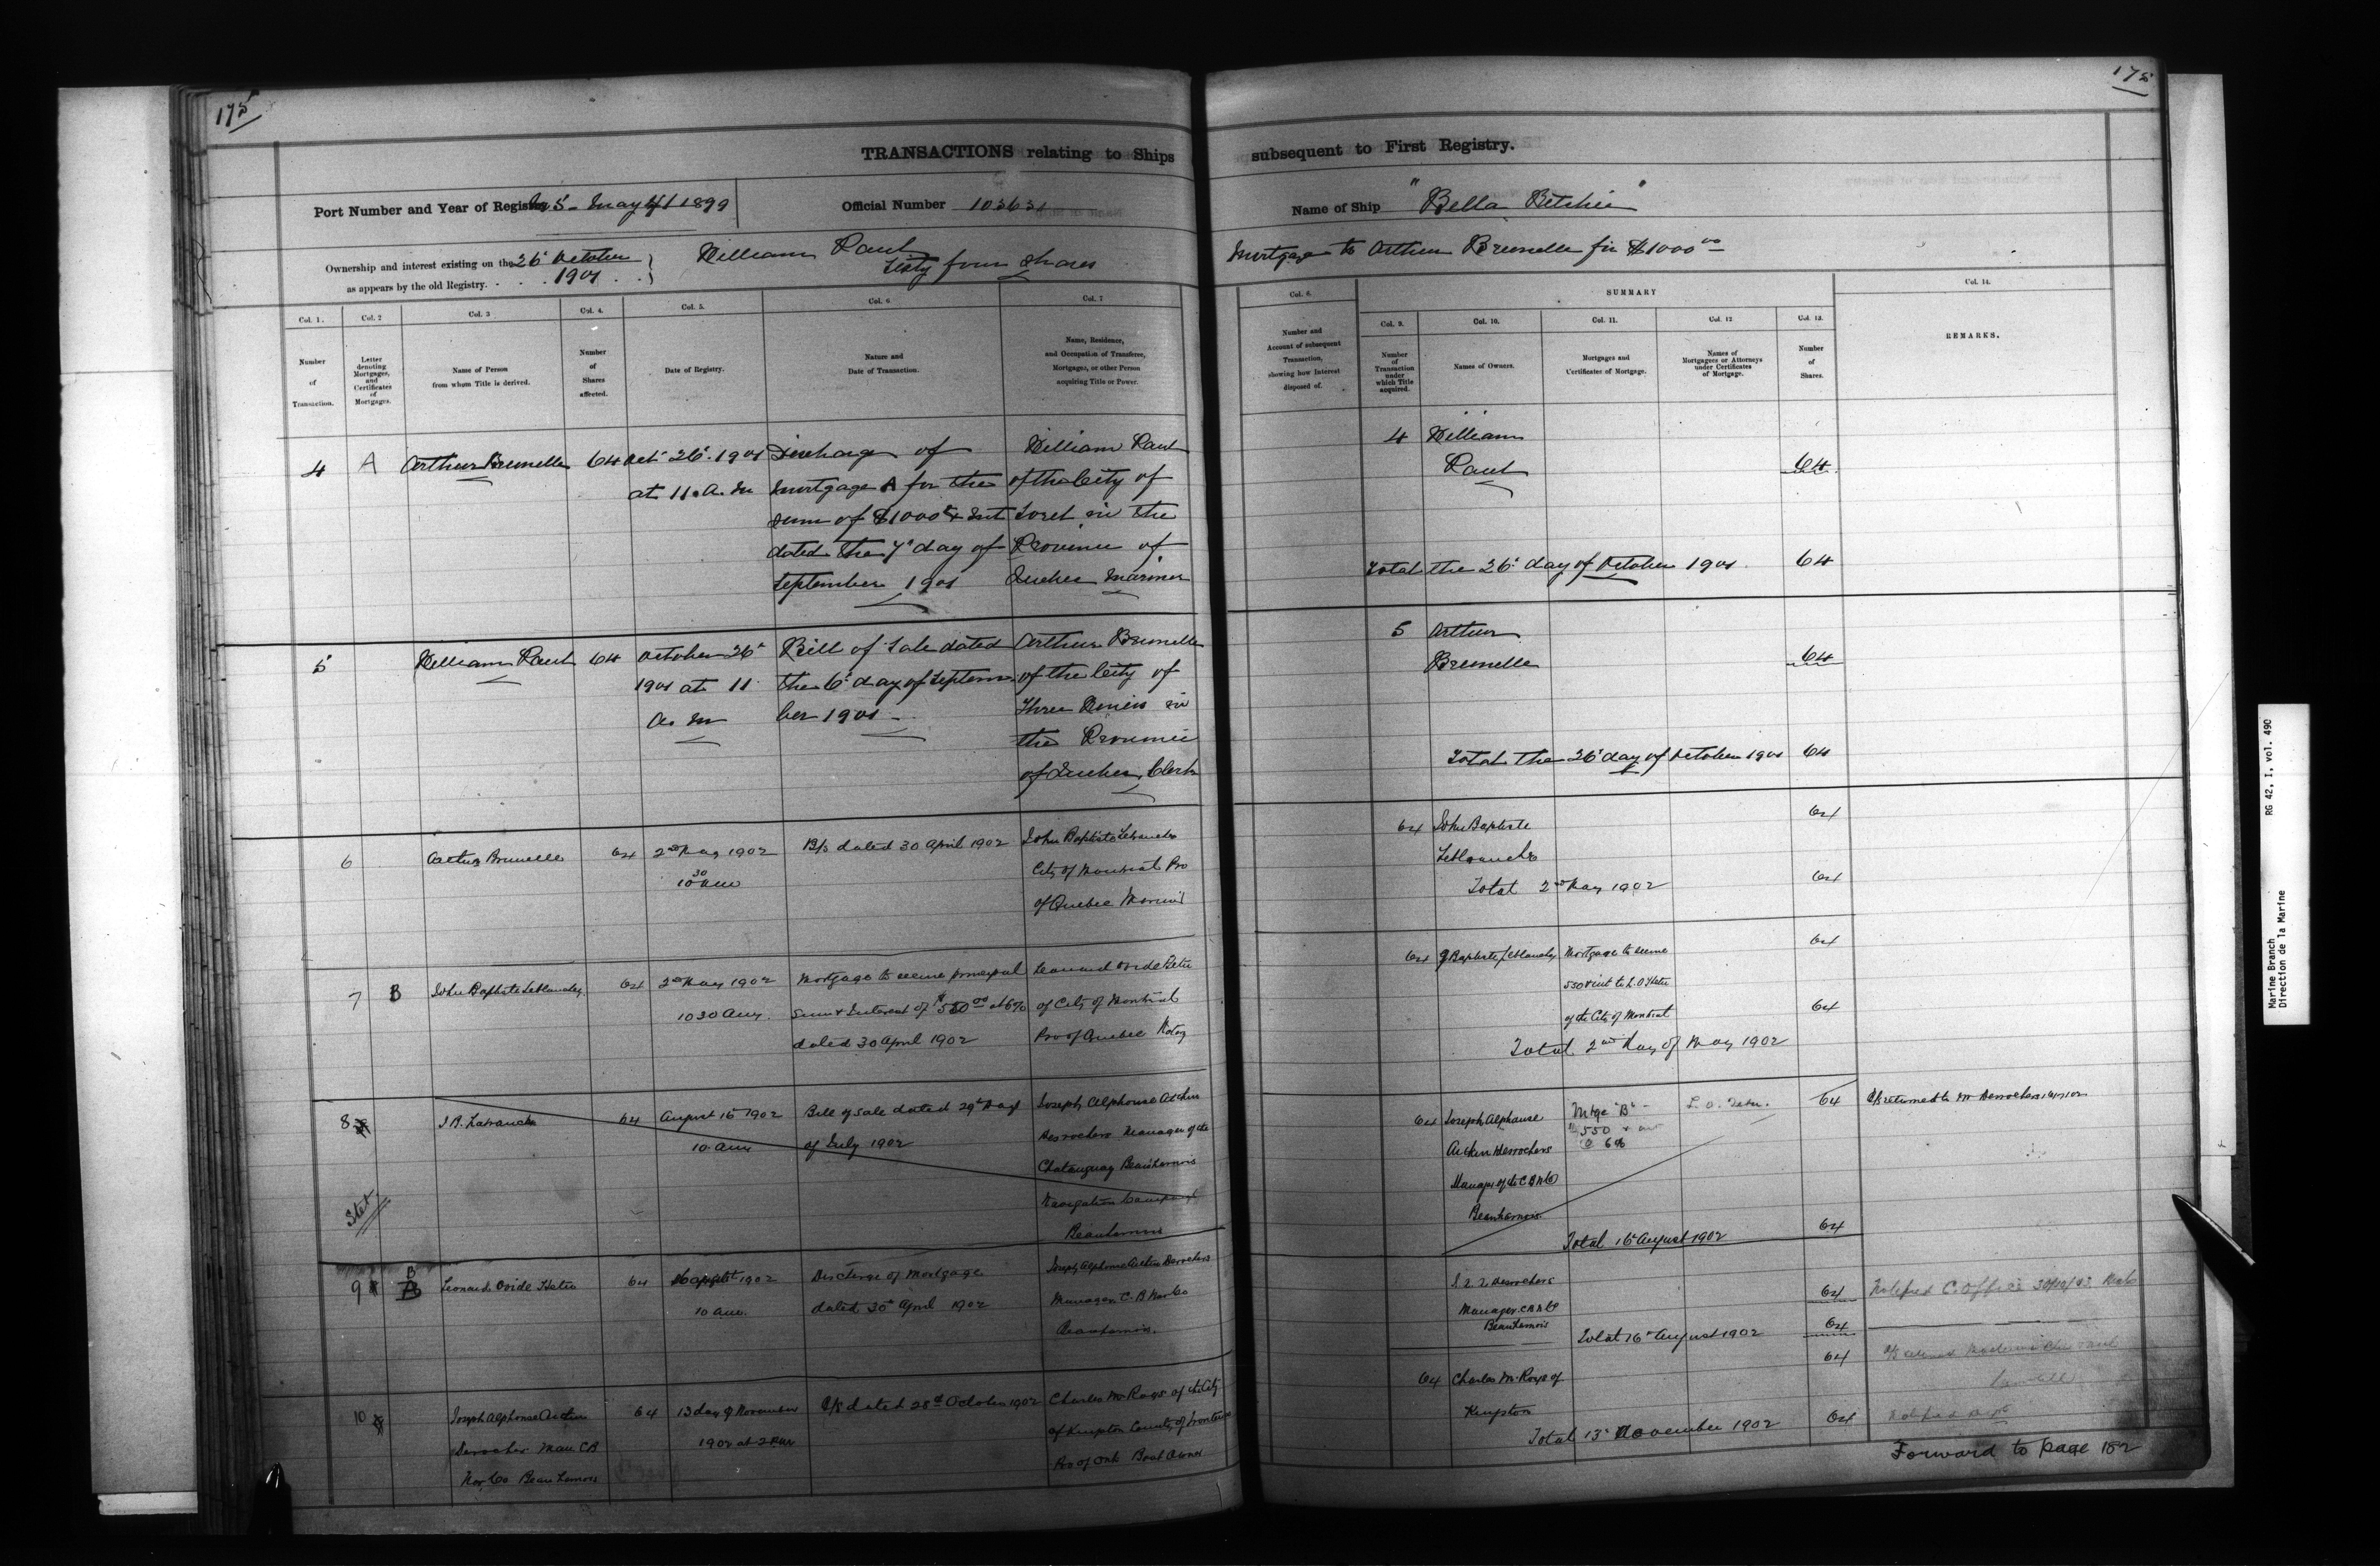 175
175
TRANSACTIONS relating to Ships subsequent to First Registry.
Port Number and Year of Registry 5 - May 1899
Official Number 103631
Name of Ship "Bella Ritchie"
Ownership and interest existing on the 26 October 1901
as appears by the old Registry.
William Paul
Sixty four shares
Mortgage to Arthur Brunelle for $1000 00
Col. 1.
Number of Transaction.
Col. 2
Letter denoting Mortgages, and Certificates of Mortgages.
Col. 3
Name of Person from whom Title is derived.
Col. 4.
Number of Shares affected.
Col. 5.
Date of Registry.
Col. 6.
Nature and Date of Transaction.
Col. 7
Name, Residence, and Occupation of Transferee, Mortgagee, or other Person acquiring Title or Power.
Col. 8.
Number and Account of subsequent Transaction, showing how Interest disposed of.
SUMMARY
Col. 9.
Number of Transaction under which Title acquired.
Col. 10.
Names of Owners.
Col. 11.
Mortgages and Certificates of Mortgage.
Col. 12
Names of Mortgagees or Attorneys under Certificates of Mortgage.
Col. 13.
Number of Shares.
Col. 14.
REMARKS.
4 A Arthur Brunelle 64 Oct 26 1901
at 11 a.m
Discharge of
Mortgage A for the
sum of $1000 & Int
dated the 7 day of
September 1901
William Paul
of the City of
Sorel in the
Province of
Quebec Mariner
4 William
Paul 64
Total the 26 day of October 1901 64
5 William Paul 64 October 26
1901 at 11
a. m
Bill of Sale dated
the 6 day of Septem
ber 1901
Arthur Brunelle
of the City of
Three Rivers in
the Province
of Quebec, Clerk
5 Arthur
Brunelle 64
Total the 26 day of October 1901 64
6 Arthur Brunelle 64 2nd May 1902
10 30 am
B/s dated 30 April 1902
John Baptiste
City of Montreal Pro
of Quebec
64 John Baptiste 64
Total 2nd May 1902 64
7 B John Baptiste 64 2nd May 1902
10 30 am
Mortgage to secure principal
Sum & Interest of $550 00 at 6%
dated 30 April 1902
Leonard Ovide Hetu
of City of Montreal
Pro of Quebec Notary
64 J Baptiste
Mortgage to secure
550 & int to L. O Hetu
of the City of Montreal
64
64
Total 2nd day of May 1902
8 J. B. 64 August 16 1902
10. am
Bill of sale dated 29th day
of July 1902
Joseph Alphonse
Desrochers Manager of the
Chateauguay Beauharnois
Navigation Company
Beauharnois
Stet
64 Joseph Alphonse
Desrochers
Manager of the C B N Co
Beauharnois
Mtge "B"
$550 & int
@ 6%
L. O. Hetu.
64
Total 16 August 1902 64
9 B Leonard Ovide Hetu 64 16 August 1902
10 am.
Discharge of Mortgage
dated 30th April 1902
Joseph Alphonse Desrochers
Manager C. B Nav Co
Beauharnois.
Desrochers
Manager C B N Co
Beauharnois 64
Total 16th August 1902 64
10 Joseph Alphonse
Desrochers Man C B
Nav Co Beauharnois
64 13 day of November
1902 at 2
B/s dated 28th October 1902
Charles of the City
of Kingston County of Frontenac
Pro of Ont Boat Owner
64 Charles of
Kingston 64
Total 13 November 1902 64
Forward to page 182
Marine Branch RG 42, I, vol. 490
Direction de la Marine